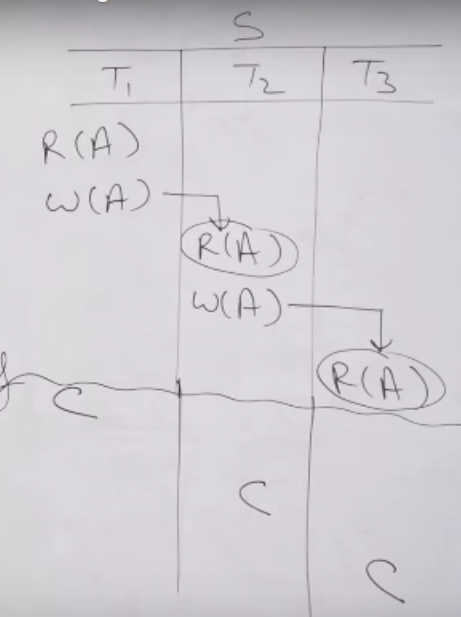 S
T1 T2 T3
R(A)
W(A)
R(A)
W(A)
R(A)
C
C
C